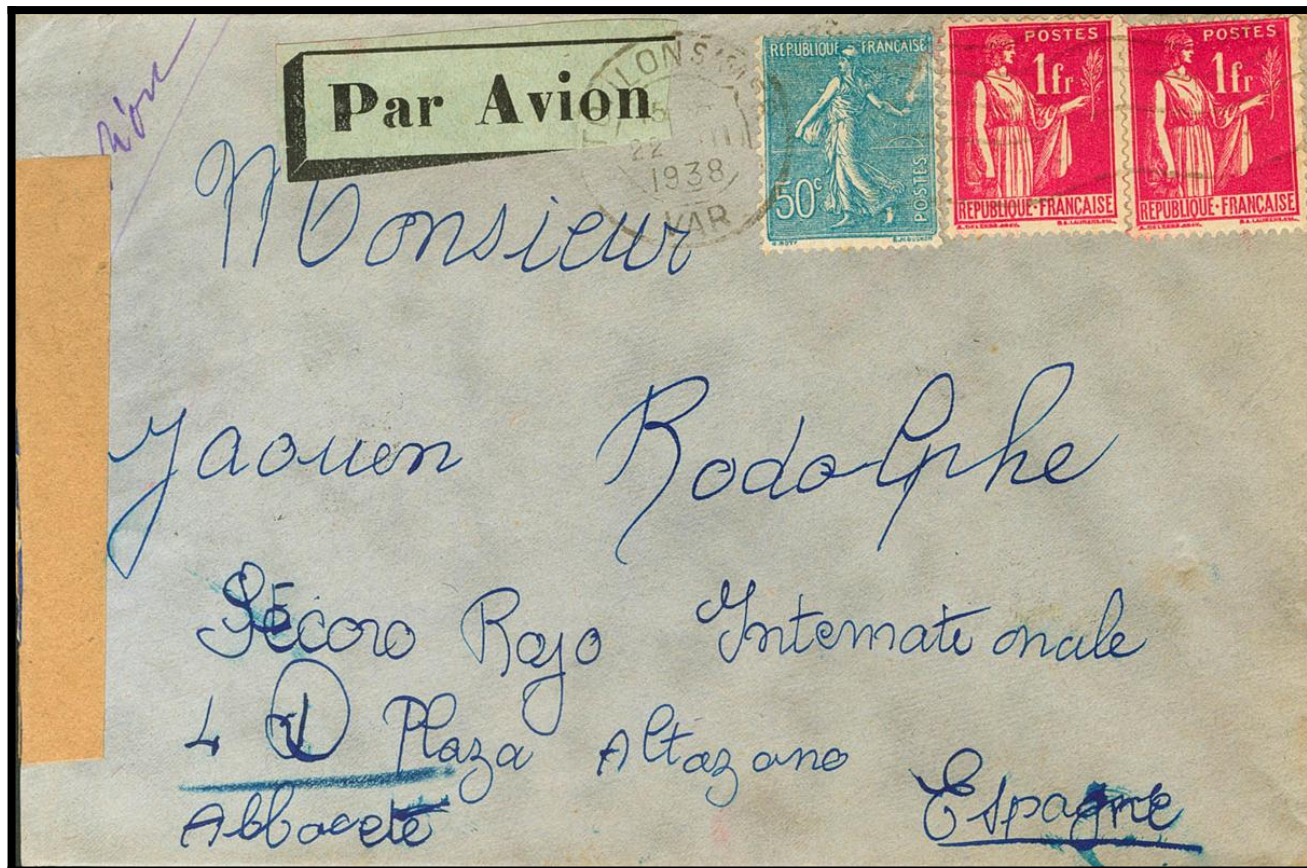 Par Avion
1938
RÉPUBLIQUE FRANÇAISE
50c
POSTES
POSTES
1fr
REPUBLIQUE·FRANÇAISE
POSTES
1fr
REPUBLIQUE·FRANÇAISE
Monsieur
Jaouen Rodolphe
Sécoro Rojo Internationale
Plaza Altazano
Abbacete Espagne